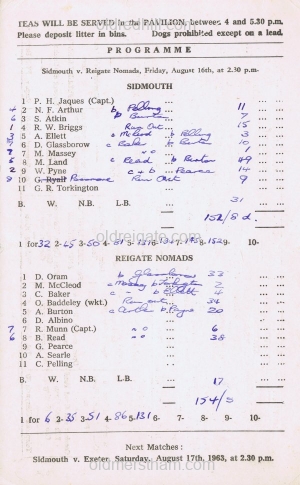 TEAS WILL BE SERVED in the PAVILION, between 4 and 5.30 p.m.
Please deposit litter in bins. Dogs prohibited except on a lead.
PROGRAMME
Sidmouth v. Reigate Nomads, Friday, August 16th, at 2.30 p.m.
SIDMOUTH
1 P. H. Jaques (Capt.)
4 2 N. F. Arthur b Pelling 11
6 3 S. Atkin b Burton 7
1 4 R. W. Briggs Run Out 15
3 5 A. Ellett c McLeod b Pelling 3
7 6 D. Glassborow c Baker b Burton 10
7 M. Massey 1
5 8 M. Land c Read b Burton 49
2 9 W. Pyne c + b Pearce 14
9 10 G. Ryall Run Out 9
11 G. R. Torkington
B. W. N.B. L.B. 31
152/8 d.
1 for 32 2- 65 3- 50 4- 81 5- 131 6- 7- 8- 152 9- 10-
oldredhill.com
oldreigate.com
REIGATE NOMADS
1 D. Oram b Glassborow 33
2 M. McCleod c Massey b Torkington 2
3 C. Baker c b Ellett 4
4 O. Baddeley (wkt.) Run out 34
5 A. Burton c b Pyne 20
6 D. Albino
7 7 R. Munn (Capt.) no 6
6 8 B. Read no 38
9 G. Pearce
10 A. Searle
11 C. Pelling
B. W. N.B. L.B. 17
154/5
1 for 6 2- 35 3- 51 4- 86 5- 131 6- 7- 8- 9- 10-
Next Matches :
Sidmouth v. Exeter, Saturday, August 17th, 1963, at 2.30 p.m.
oldmerstham.com